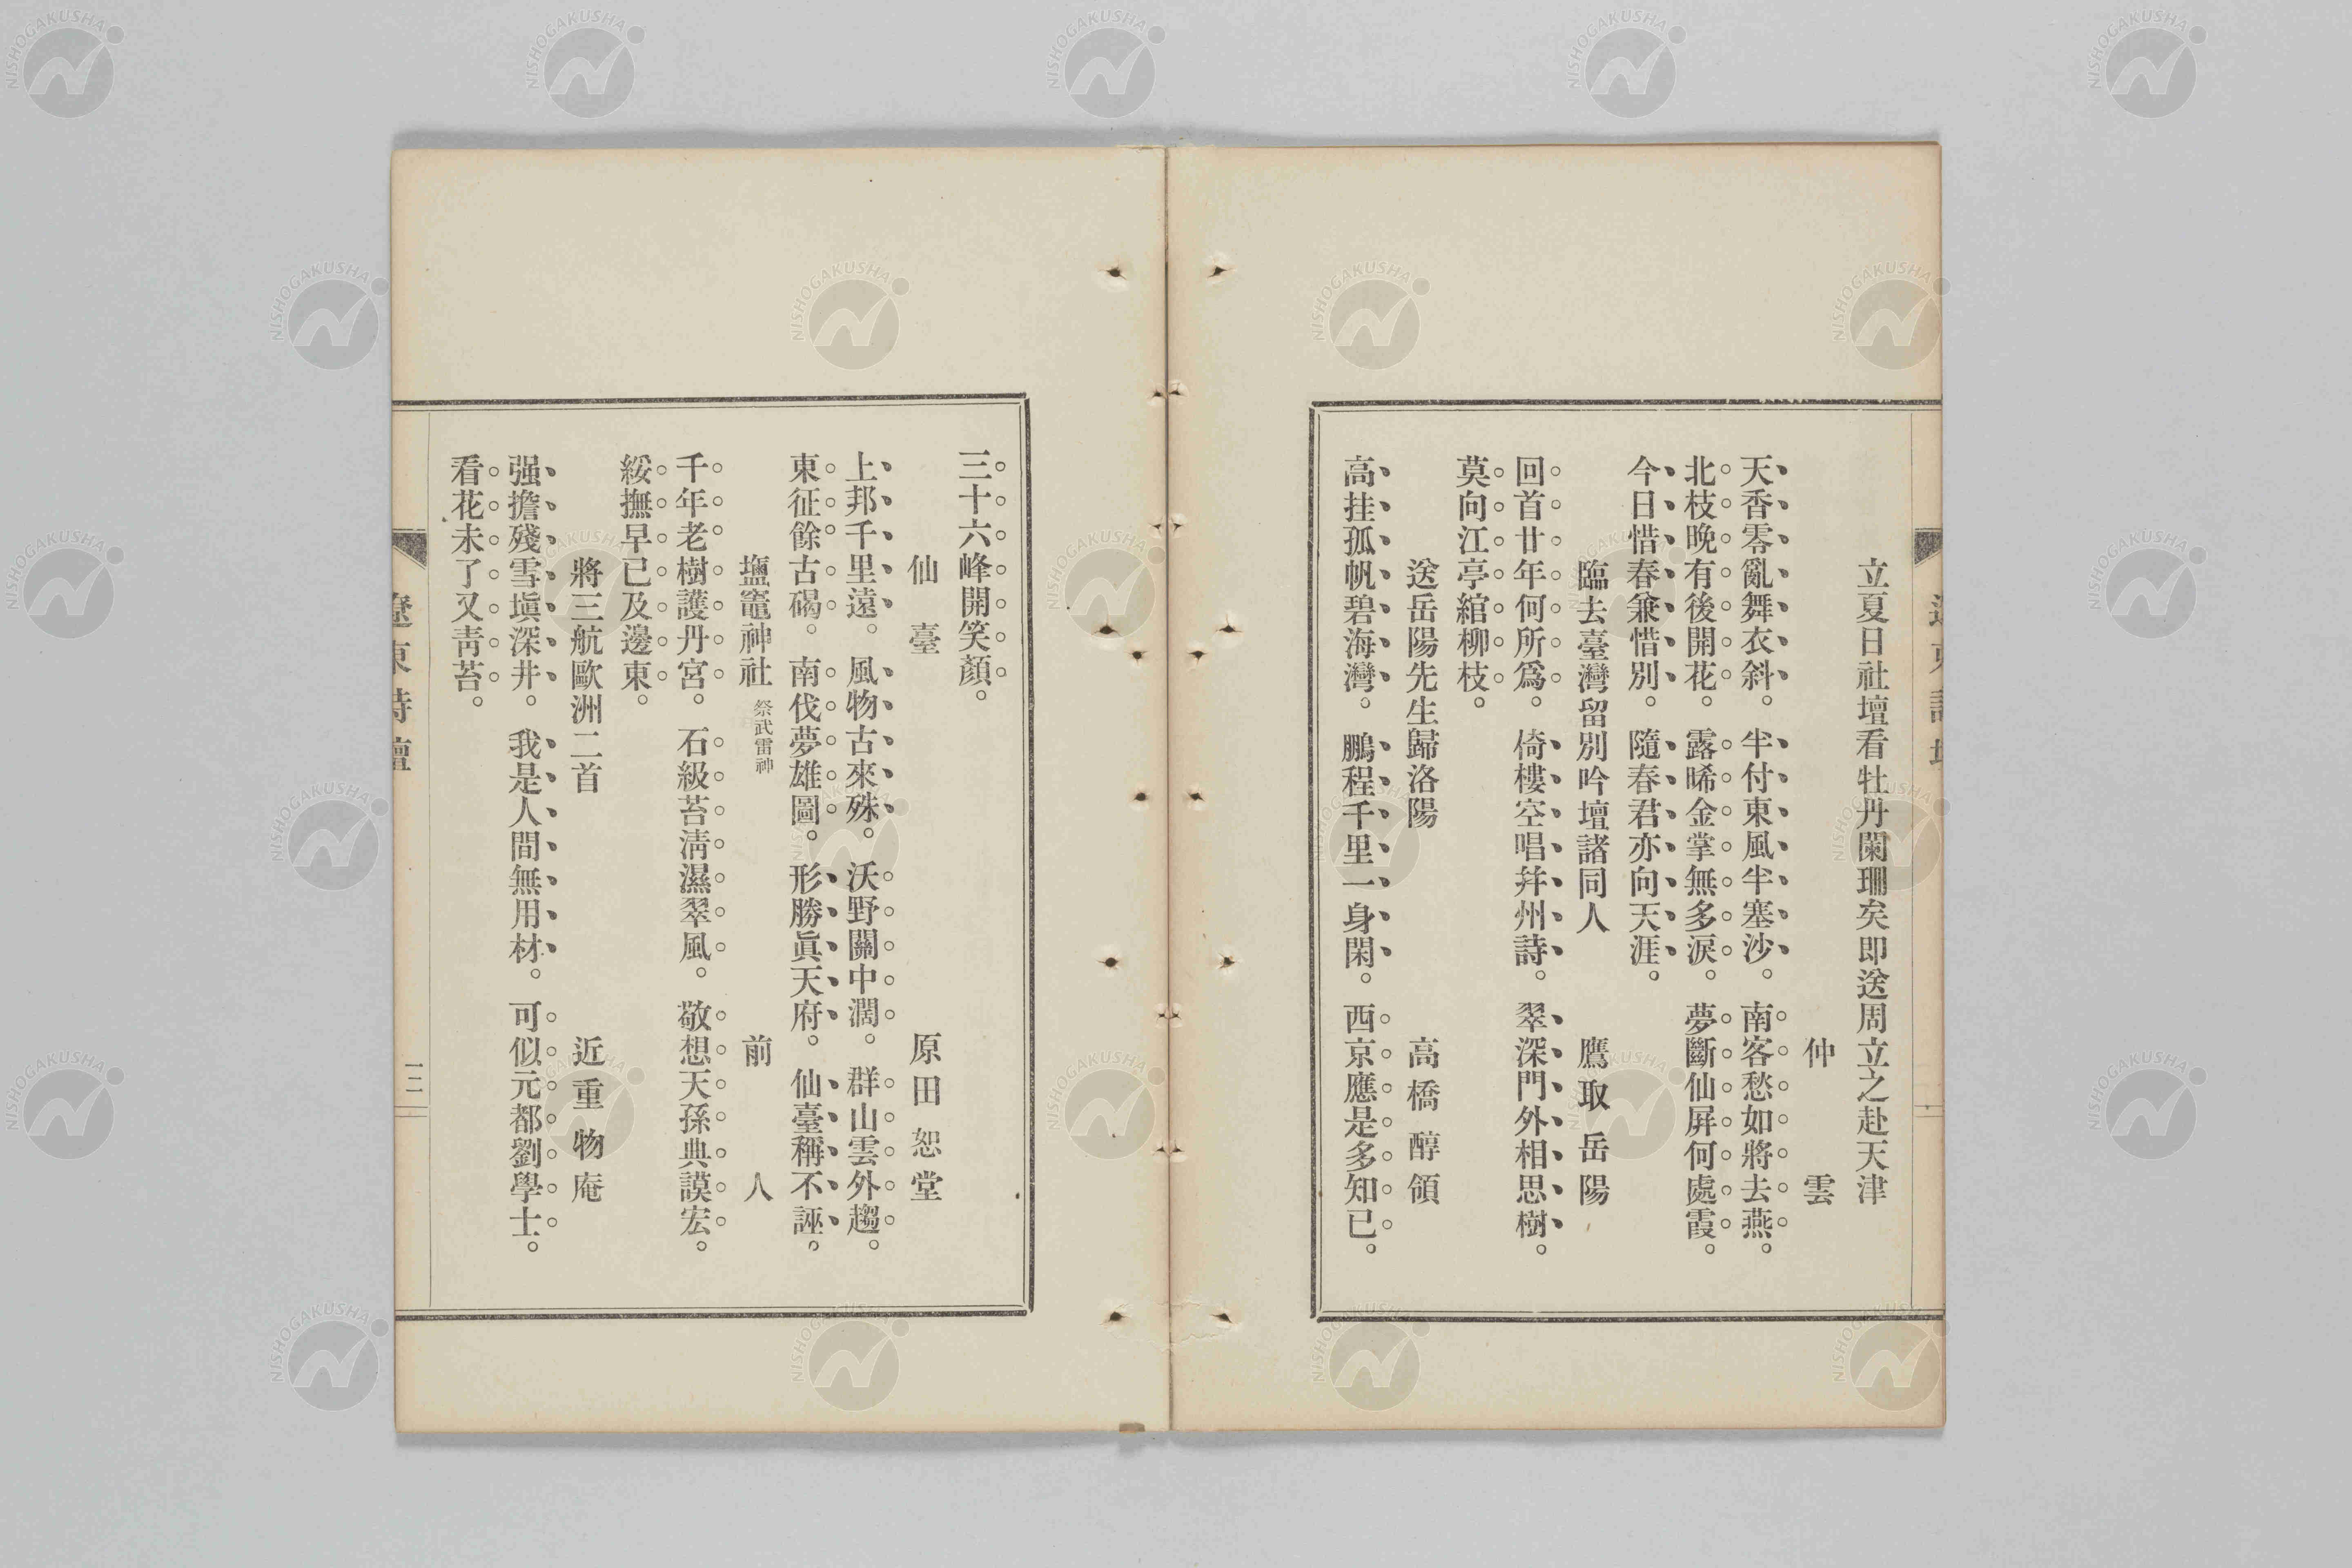 立夏日社壇看牡丹闌珊矣即送周立之赴天津
仲雲
天香零亂舞衣斜。半付東風半塞沙。南客愁如將去燕。
北枝晚有後開花。露晞金掌無多淚。夢斷仙屏何處霞。
今日惜春兼惜別。隨春君亦向天涯。
臨去臺灣留別吟壇諸同人 鷹取岳陽
回首廿年何所爲。倚樓空唱幷州詩。翠深門外相思樹。
莫向江亭綰柳枝。
送岳陽先生歸洛陽 高橋醇領
高挂孤帆碧海灣。鵬程千里一身閑。西京應是多知已。
三十六峰開笑顏。
仙臺 原田恕堂
上邦千里遠。風物古來殊。沃野關中濶。群山雲外趨。
東征餘古碣。南伐夢雄圖。形勝眞天府。仙臺稱不誣。
塩竈神社 祭武雷神 前人
千年老樹護丹宮。石級苔淸濕翠風。敬想天孫典謨宏。
綏撫早已及邊東。
將三航歐洲二首 近重物庵
强擔殘雪塡深井。我是人間無用材。可似元都劉學士。
看花未了又靑苔。
遼東詩壇
一二
NISHOGAKUSHA